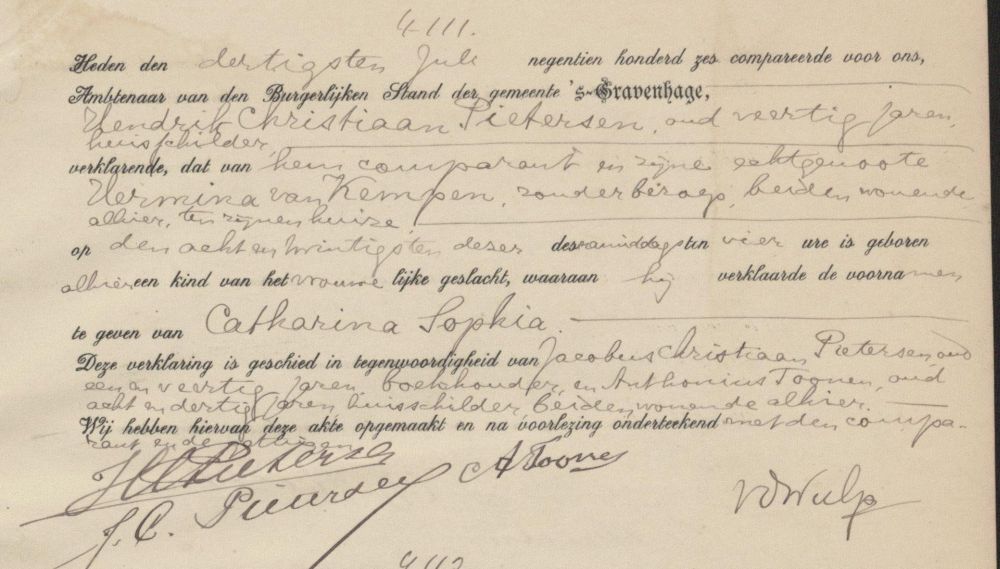 4111.
Heden den dertigsten Juli negentien honderd zes compareerde voor ons,
Ambtenaar van den Burgerlijken Stand der gemeente 's-Gravenhage,
Hendrik Christiaan Pietersen, oud veertig jaren,
huisschilder,
verklarende, dat van hem comparant en zijne echtgenoote
Hermina van Kempen, zonder beroep, beiden wonende
alhier, ten zijnen huize,
op den acht en twintigsten dezer des namiddags ten vier ure is geboren
alhier een kind van het vrouwelijke geslacht, waaraan hij verklaarde de voornamen
te geven van Catharina Sophia.
Deze verklaring is geschied in tegenwoordigheid van Jacobus Christiaan Pietersen, oud
een en veertig jaren, boekhouder, en Anthonius Toonen, oud
acht en dertig jaren, huisschilder, beiden wonende alhier.
Wij hebben hiervan deze akte opgemaakt en na voorlezing onderteekend met den compa-
rant en de getuigen.
HC Pietersen
J. C. Pietersen A Toonen
vd Wulp
4112